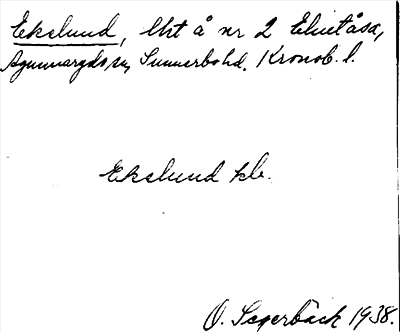 Ekelund, lht å nr 2 Elmetåsa,
Agunnaryds sn, Sunnerbo hd. Kronob. l.
Ekelund kb.
O. Segerbäck 1938.